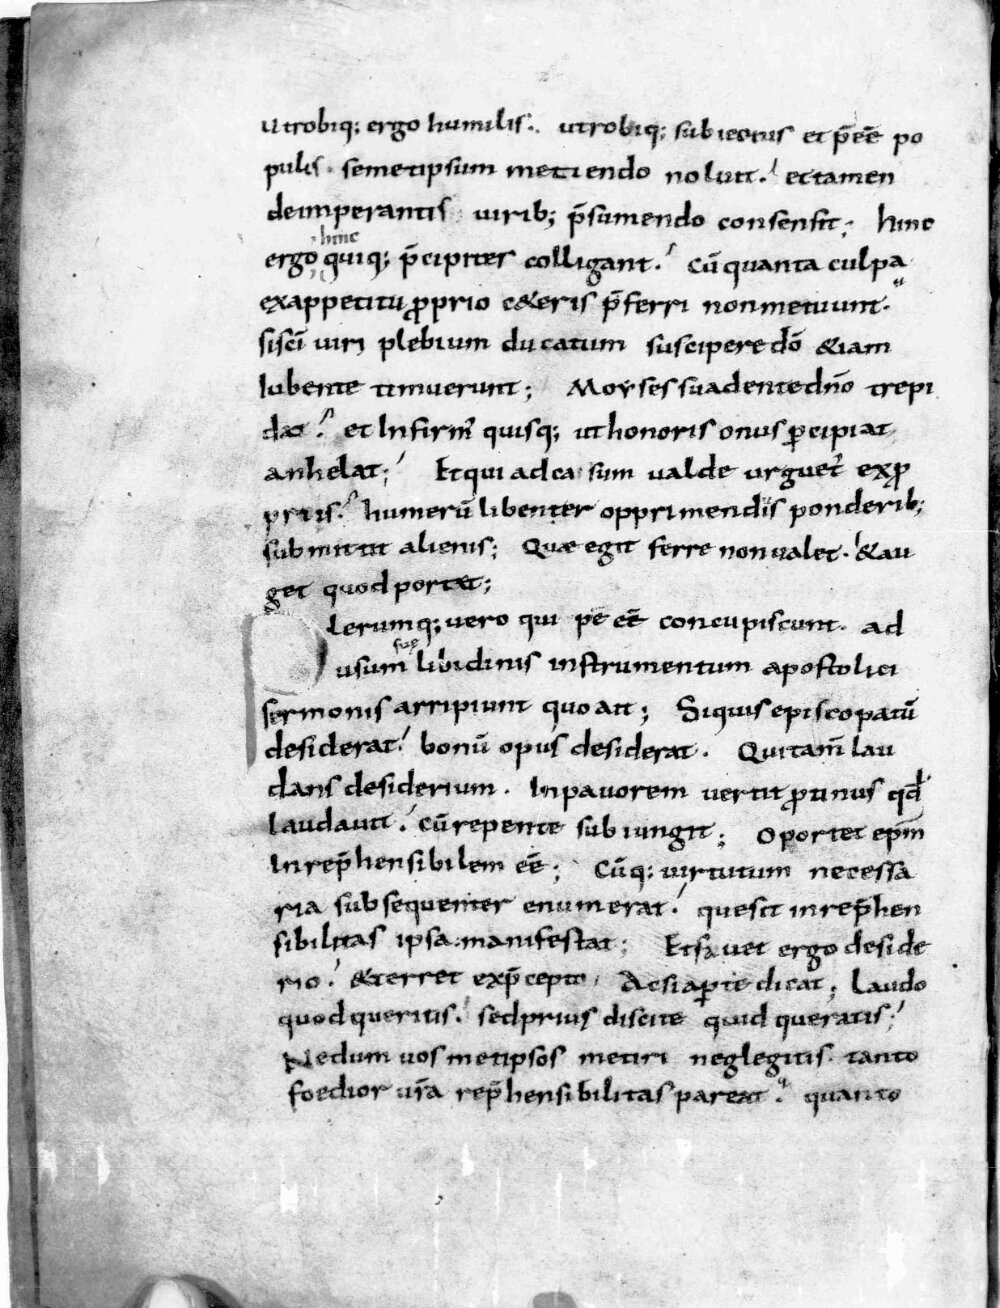 utrobiq; ergo humilis. utrobiq; subiectus et p̄eē po
pulis. semetipsum metiendo noluit. et tamen
de imperantis virib; p̄sumendo consensit; hinc
ergo hinc quiq; p̄cipites colligant. Cū quanta culpa
ex appetitu ꝓprio c&eris p̄ferri non metuunt.
si sc̄i viri plebium ducatum suscipere dō &iam
iubente timuerunt; Moyses suadente dn̄o trepi
dat. et Infirm̄ quisq; ut honoris onus ꝑcipiat
anhelat; Et qui ad casum valde urguet̄ exꝓ
priis. humerū libenter opprimendus ponderib;
submittit alienis; Quae egit ferre non valet. &au
get quod portat;
Plerumq; vero qui p̄eē concupiscunt. ad
usum suę libidinis instrumentum apostolici
sermonis arripiunt quo ait; Siquis episcopatū
desiderat. bonū opus desiderat. Qui tam̄ lau
dans desiderium. In pavorem vertit ꝓtinus qd̄
laudavit. Cū repente subiungit; Oportet ep̄m
Inrep̄hensibilem eē; Cūq; virtutum necessa
ria subsequenter enumerat. quesit inrep̄hen
sibilitas ipsa manifestat; Et favet ergo deside
rio. &terret exp̄cepto. Ac si aꝑte dicat; Laudo
quod queritis. sed prius discite quid queratis;
Ne dum vosmetipsos metiri neglegitis. tanto
foedior vr̄a rep̄hensibilitas pareat. quanto